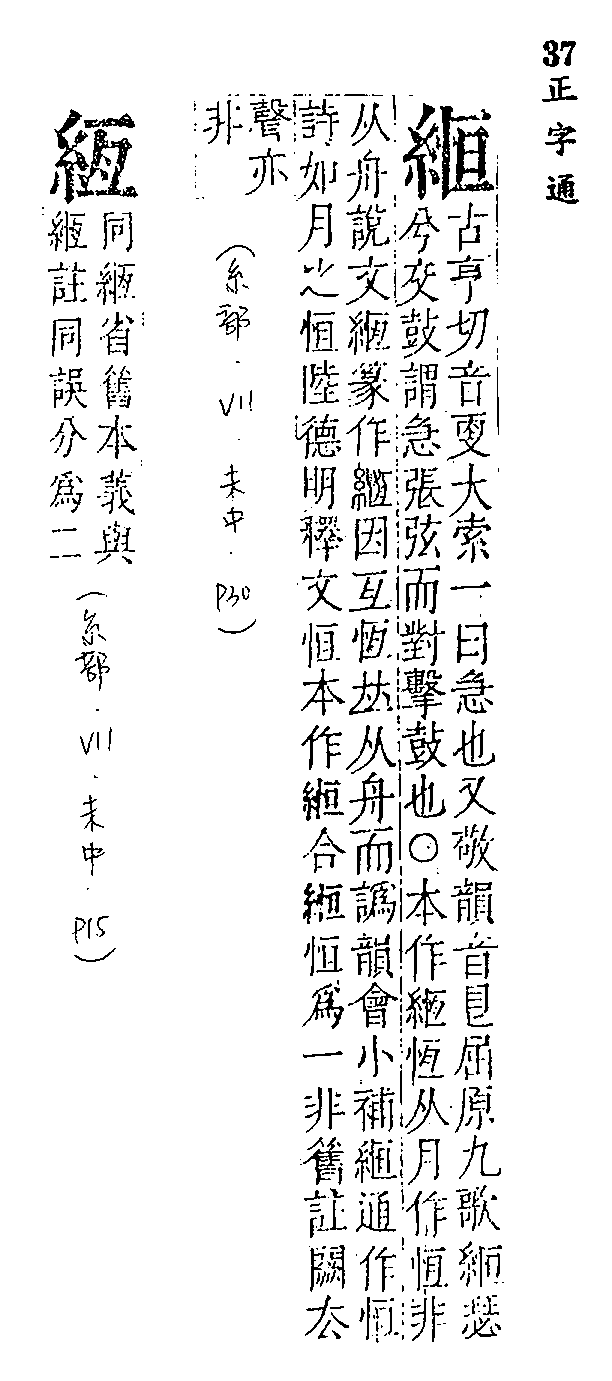 37 正字通
縆
古亨切音更大索一曰急也又敬韻音亘屈原九歌縆瑟
兮交鼓謂急張弦而對擊鼓也○本作緪恆从月作恆非
从舟說文緪篆作緪因互恆𠀤从舟而譌韻會小補縆通作恒
詩如月之恒陸德明釋文恒本作縆合縆恒爲一非舊註闕去
聲亦
非
(糸部.VII.未中.P30)
絚
同緪省舊本義與
緪註同誤分爲二
(糸部.VII.未中.P15)